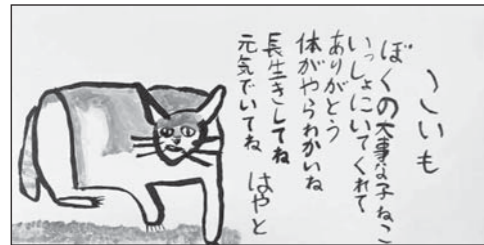 こいも
ぼくの大事な子ねこ
いっしょにいてくれて
ありがとう
体がやらわかいね
長生きしてね
元気でいてね はやと